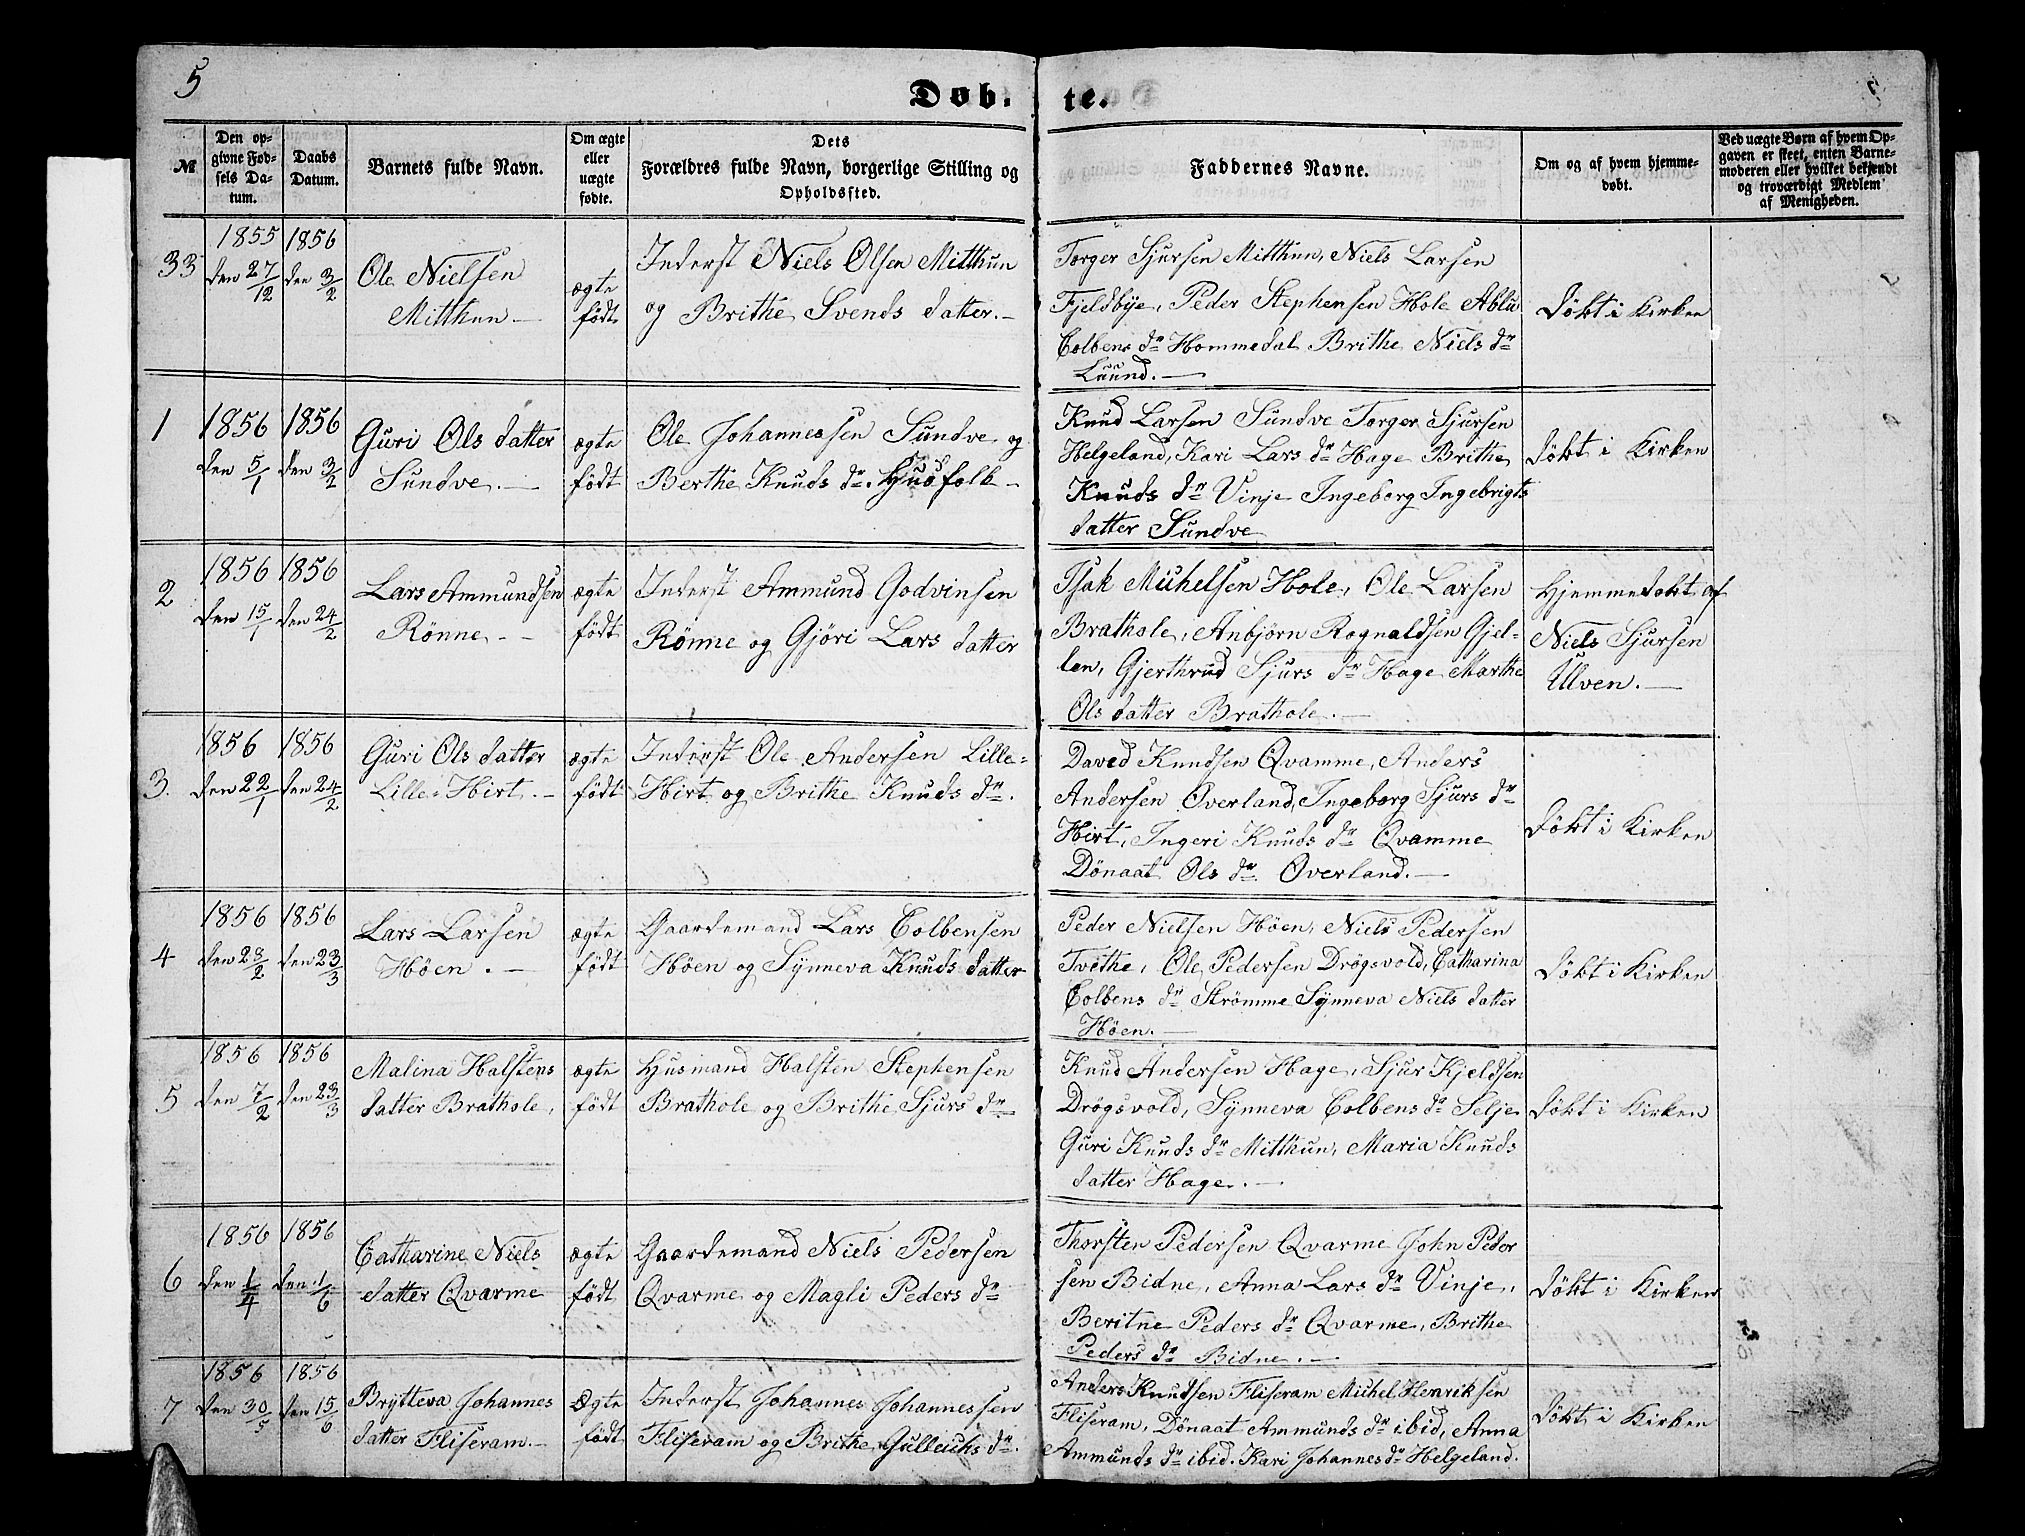 5
Døb- te.
№
Den op-
givne Fød-
sels Da-
tum.
Daabs
Datum.
Barnets fulde Navn.
Om ægte
eller
uægte
fødte.
Dets
Forældres fulde Navn, borgerlige Stilling og
Opholdssted.
Faddernes Navne.
Om og af hvem hjemme-
døbt.
Ved uægte Børn af hvem Op-
gaven er skeet, enten Barne-
moderen eller hvilket bekjendt
og troværdigt Medlem
af Menigheden.
33
1855
den 27/12
1856
den 3/2
Ole Nielsen
Mitthun
ægte
født
Inderst Niels Olsen Mitthun
og Brithe Svends datter.
Torger Sjursen Mitthun, Niels Larsen
Fjeldbye, Peder Stephensen Hole Ablu
Colbens dr Hommedal Brithe Niels dr
Luund.
Døbt i Kirken
1
1856
den 5/1
1856
den 3/2
Guri Ols datter
Sundve.
ægte
født
Ole Johannessen Sundve og
Berthe Knuds dr. Huusfolk
Knud Larsen Sundve Torger Sjursen
Helgeland, Kari Lars dr Hage Brithe
Knuds dr Vinje Ingeborg Ingebrigts
datter Sundve
Døbt i Kirken
2
1856
den 15/1
1856
den 24/2
Lars Ammundsen
Rönne
ægte
født
Inderst Ammund Godvinsen
Rönne og Gjöri Lars datter
Isak Michelsen Hole, Ole Larsen
Brathole, Anbjörn Rognaldsen Gjel-
len, Gjerthrud Sjurs dr Hage Marthe
Ols datter Brathole.
Hjemmedøbt af
Niels Sjursen
Ulven.
3.
1856
den 22/1
1856
den 24/2
Guri Ols datter
Lille-Hirt.
ægte
født
Inderst Ole Andersen Lille-
Hirt og Brithe Knuds dr.
David Knudsen Qvamme, Anders
Andersen Overland, Ingeborg Sjurs dr
Hirt, Ingeri Knuds dr Qvamme
Dönaat Ols dr Overland.
Døbt i Kirken
4
1856
den 28/2
1856
den 23/3
Lars Larsen
Höen.
ægte
født
Gaardemand Lars Colbensen
Höen og Synneva Knuds datter
Peder Nielsen Höen, Niels Pedersen
Tvethe, Ole Pedersen Drögsvold, Catharina
Colbens dr Strömme Synneva Niels datter
Höen.
Døbt i Kirken
5
1856
den 7/2
1856
den 23/3
Malina Halstens
datter Brathole,
ægte
født
Husmand Halsten Stephensen
Brathole og Brithe Sjurs dr
Knud Andersen Hage, Sjur Kjeldsen
Drögsvold, Synneva Colbens dr Selje
Guri Knuds dr Mitthun, Maria Knuds
datter Hage.
Døbt i Kirken
6
1856
den 1/4
1856
den 1/6
Catharine Niels
datter Qvarme
ægte
født
Gaardemand Niels Pedersen
Qvarme og Magli Peders dr
Thorsten Pedersen Qvarme John Peder
sen Bidne, Anna Lars dr Vinje,
Beritne Peders dr Qvarme, Brithe
Peders dr Bidne.
Døbt i Kirken
7
1856
den 30/5
1856
den 15/6
Brytteva Johannes
datter Fliseram.
Ægte
født
Inderst Johannes Johannessen
Fliseram og Brithe Gulleichs dr.
Anders Knudsen Fliseram Michel Henriksen
Fliseram, Dönaat Ammunds dr ibid, Anna
Ammunds dr ibid. Kari Johannes dr Helgeland.
Døbt i Kirken